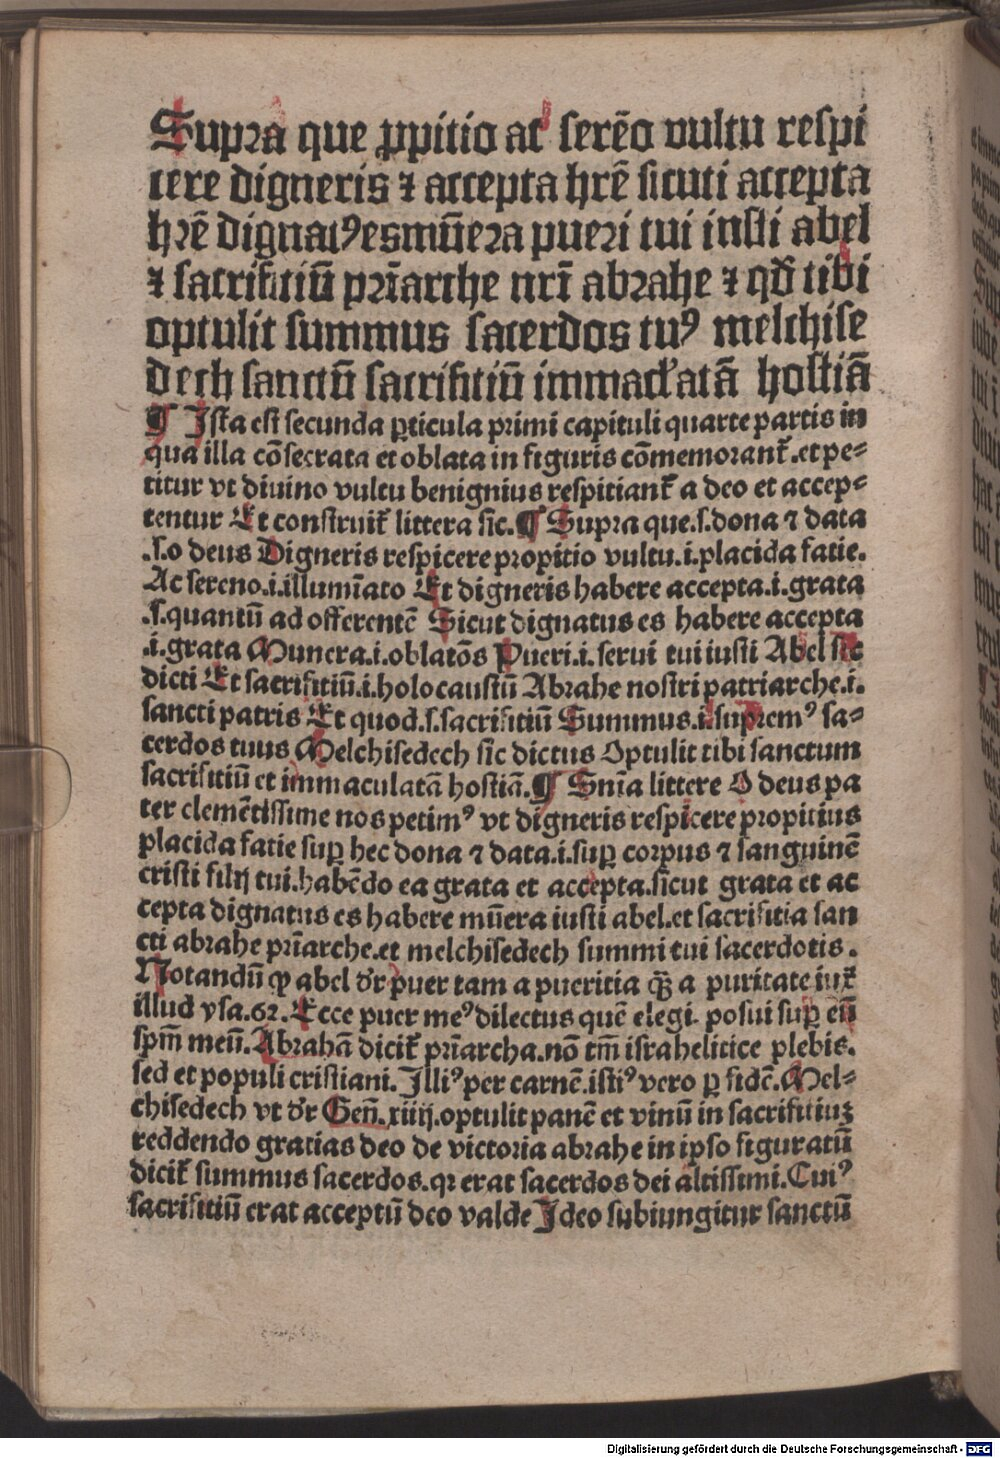 Supra que ꝓpitio ac serēo vultu respi
cere digneris ⁊ accepta hr̄e sicuti accepta
hr̄e dignatꝰ es mūera pueri tui iusti abel
⁊ sacrificiū pr̄iarche nr̄i abrahe ⁊ qđ tibi
optulit summus sacerdos tuꝰ melchise
dech sanctū sacrificiū immacl̓atā hostiā
¶ Ista est secunda ꝑticula primi capituli quarte partis in
qua illa cōsecrata et oblata in figuris cōmemorant̄.et pe⸗
titur vt diuino vultu benignius respitiant̄ a deo et accep⸗
tentur Et construit̄ littera sic.¶ Supra que.s.dona ⁊ data
.s.o deus Digneris respicere propitio vultu.i.placida facie.
Ac sereno.i.illumīato Et digneris habere accepta.i.grata
.s.quantū ad offerentē Sicut dignatus es habere accepta
.i.grata Munera.i.oblatōs Pueri.i.serui tui iusti Abel sic
dicti Et sacrificiū.i.holocaustū Abrahe nostri patriarche.i.
sancti patris Et quod.s.sacrificiū Summus.i.supremꝰ sa⸗
cerdos tuus Melchisedech sic dictus Optulit tibi sanctum
sacrificiū et immaculatā hostiā.¶ Snīa littere O deus pa
ter clemētissime nos petimꝰ vt digneris respicere propicius
placida facie suꝑ hec dona ⁊ data.i.suꝑ corpus ⁊ sanguinē
cristi filij tui.habēdo ea grata et accepta.sicut grata et ac
cepta dignatus es habere mūera iusti abel.et sacrificia san
cti abrahe pr̄iarche.et melchisedech summi tui sacerdotis.
Notandū ꝙ abel dr̄ puer tam a puericia q̄ꝫ a puritate iuxͭ
illud ysa.62.Ecce puer meꝰ dilectus quē elegi. posui suꝑ eū
spm̄ meū.Abrahā dicit̄ pr̄iarcha.nō tm̄ israhelitice plebis.
sed et populi cristiani.Illiꝰ per carnē.istiꝰ vero ꝑ fidē.Mel⸗
chisedech vt dr̄ Geñ.xiiij.optulit panē et vinū in sacrificiuꝫ
reddendo gratias deo de victoria abrahe in ipso figuratū
dicit̄ summus sacerdos.qꝛ erat sacerdos dei altissimi.Cuiꝰ
sacrificiū erat acceptū deo valde Ideo subiungitur sanctū
Digitalisierung gefördert durch die Deutsche Forschungsgemeinschaft - DFG